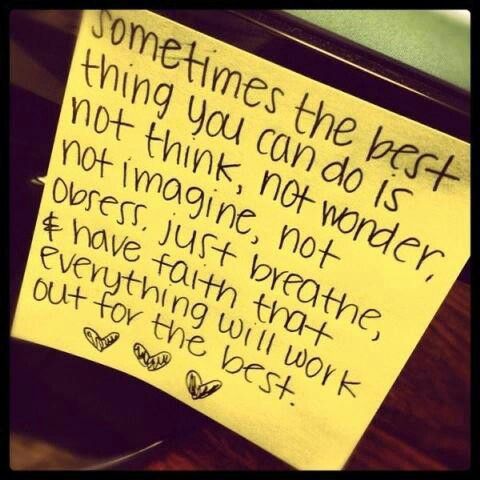 sometimes the best
thing you can do is
not think, not wonder,
not imagine, not
obsess. just breathe,
& have faith that
everything will work
out for the best.